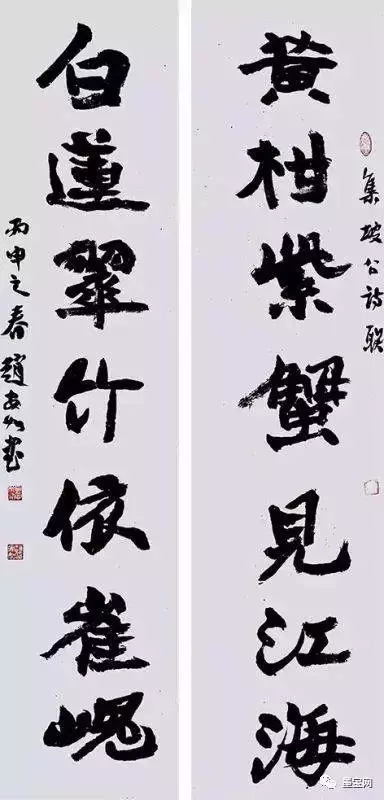 集坡公詩聯
黄柑紫蟹見江海
白蓮翠竹依崔嵬
丙申之春趙安如書
墨宝网